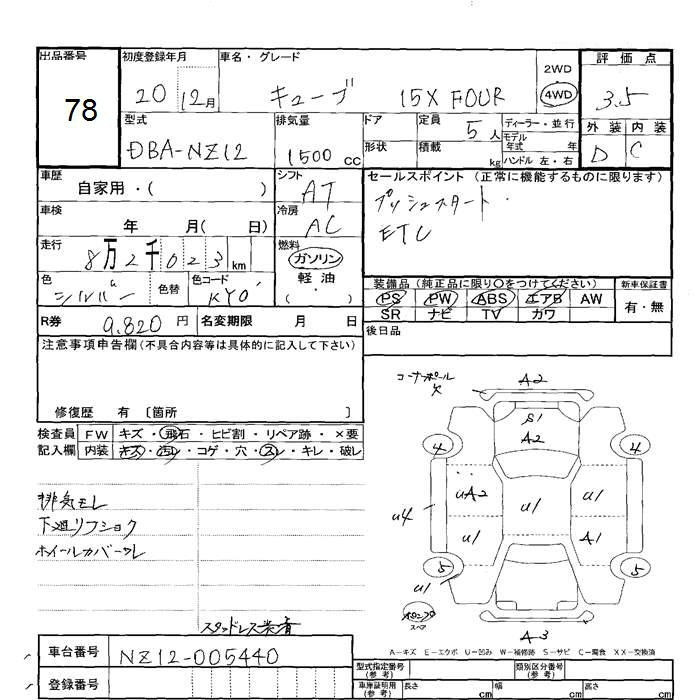 出品番号 初度登録年月 車名・グレード 評価点
78 20 12月 キューブ 15X FOUR 2WD 4WD 3.5
型式 排気量 ドア 定員 5人 ディーラー・並行 外装 内装
DBA-NZ12 1500cc 形状 積載 kg モデル年式 年 D C
ハンドル 左・右
車歴 自家用・( ) シフト AT セールスポイント(正常に機能するものに限ります)
車検 年 月( 日) 冷房 AC プッシュスタート
走行 8万2千023km 燃料 ガソリン ETC
軽油
( )
色 シルバー 色替 色コード KYO
装備品(純正品に限り○をつけてください) 新車保証書
PS PW ABS エアB AW 有・無
SR ナビ TV カワ
R券 9.820円 名変期限 月 日 後日品
注意事項申告欄(不具合内容等は具体的に記入して下さい)
修復歴 有 〔箇所 〕
検査員 FW キズ・飛石・ヒビ割・リペア跡・×要
記入欄 内装 キズ・汚レ・コゲ・穴・スレ・キレ・破レ
コーナーポール
欠
A2
S1
A2
4 4
uA2 u1 u1
u4
u1 A1
5 5
u1
スペア
A3
排気モレ
下廻リフショク
ホイールカバーワレ
スタッドレス装着
A-キズ E-エクボ U-凹み W-補修跡 S-サビ C-腐食 XX-交換済
車台番号 NZ12-005440
登録番号
型式指定番号(参考) 類別区分番号(参考)
車庫証明用(参考) 長さ cm 幅 cm 高さ cm